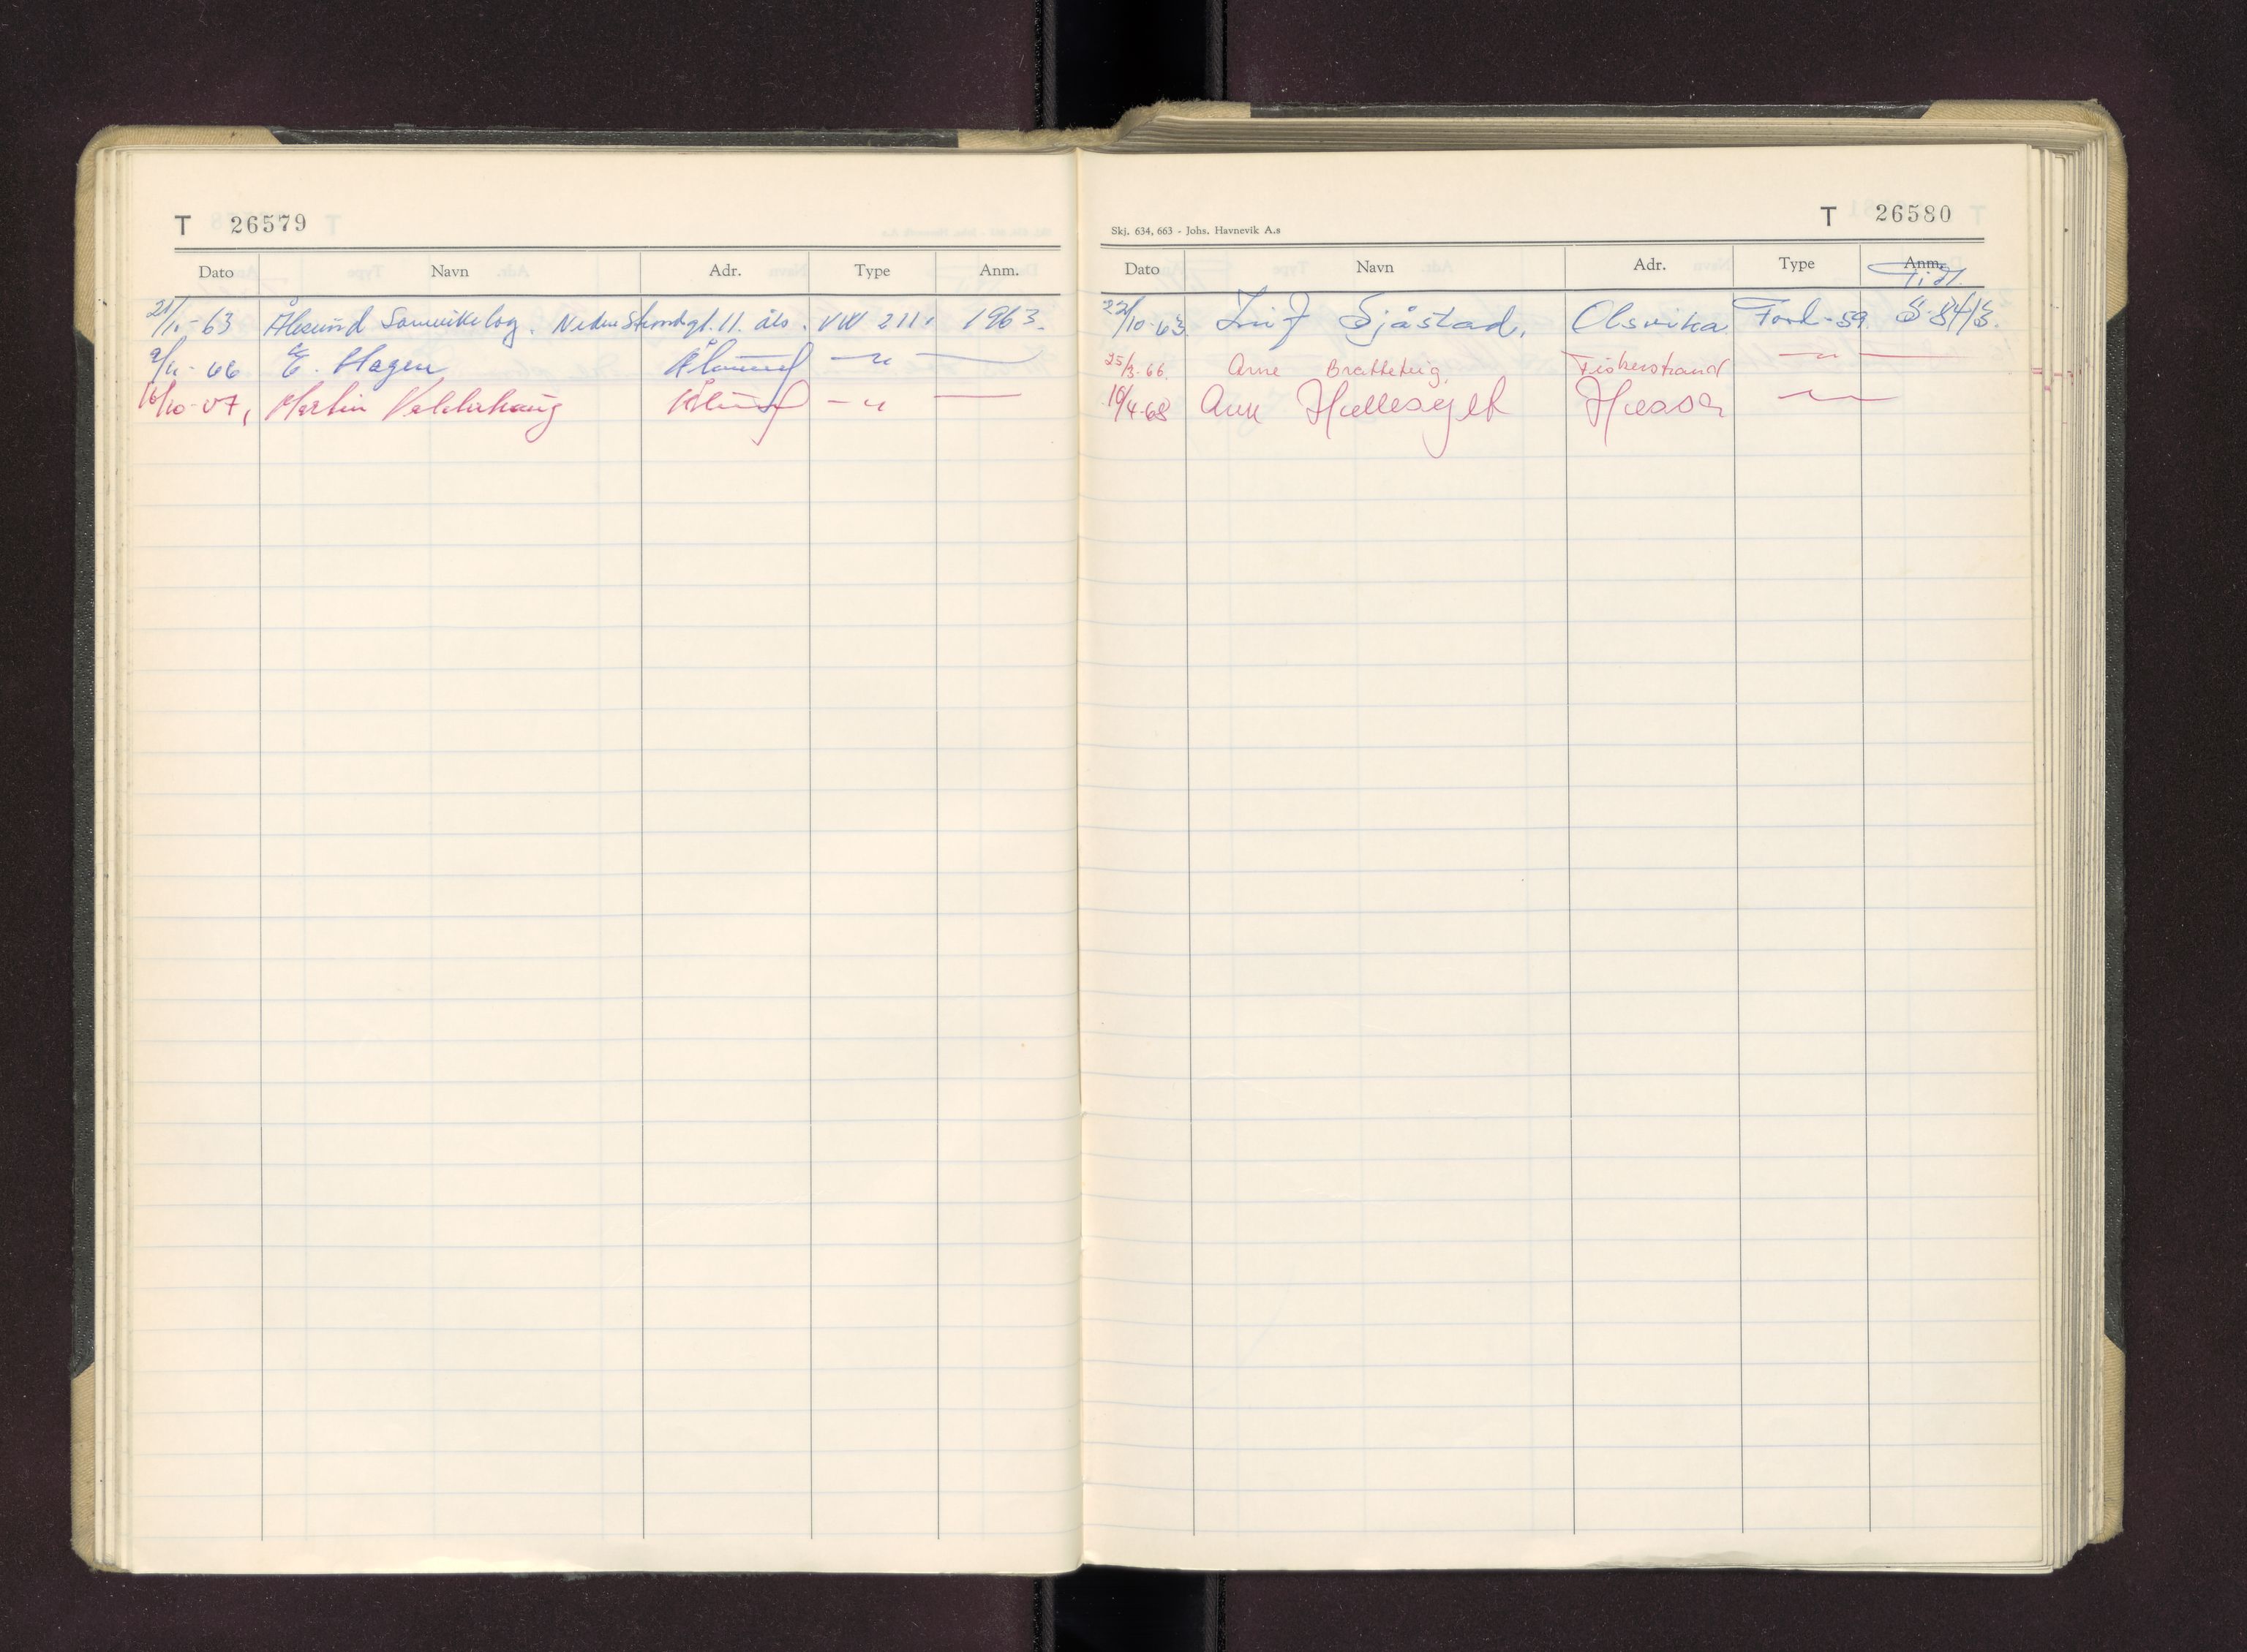 T 26579
Dato Navn Adr. Type Anm.
21/11-63 Ålesund Samvirkelag. Nedre Strandgt. 11. Åls. VW 211. 1963.
9/11-66 E. Hagen Ålesund —„—
16/10-67, Martin Valderhaug Ålesund —„—
T 26580
Skj. 634, 663 - Johs. Havnevik A.s
Dato Navn Adr. Type Anm.
Tidl.
22/10-63 Leif Sjåstad. Olsvika Ford-59. S-8413.
25/3-66. Arne Brattheteig. Fiskerstrand —„—
16/4-68 Hellesylt Hessa —„—